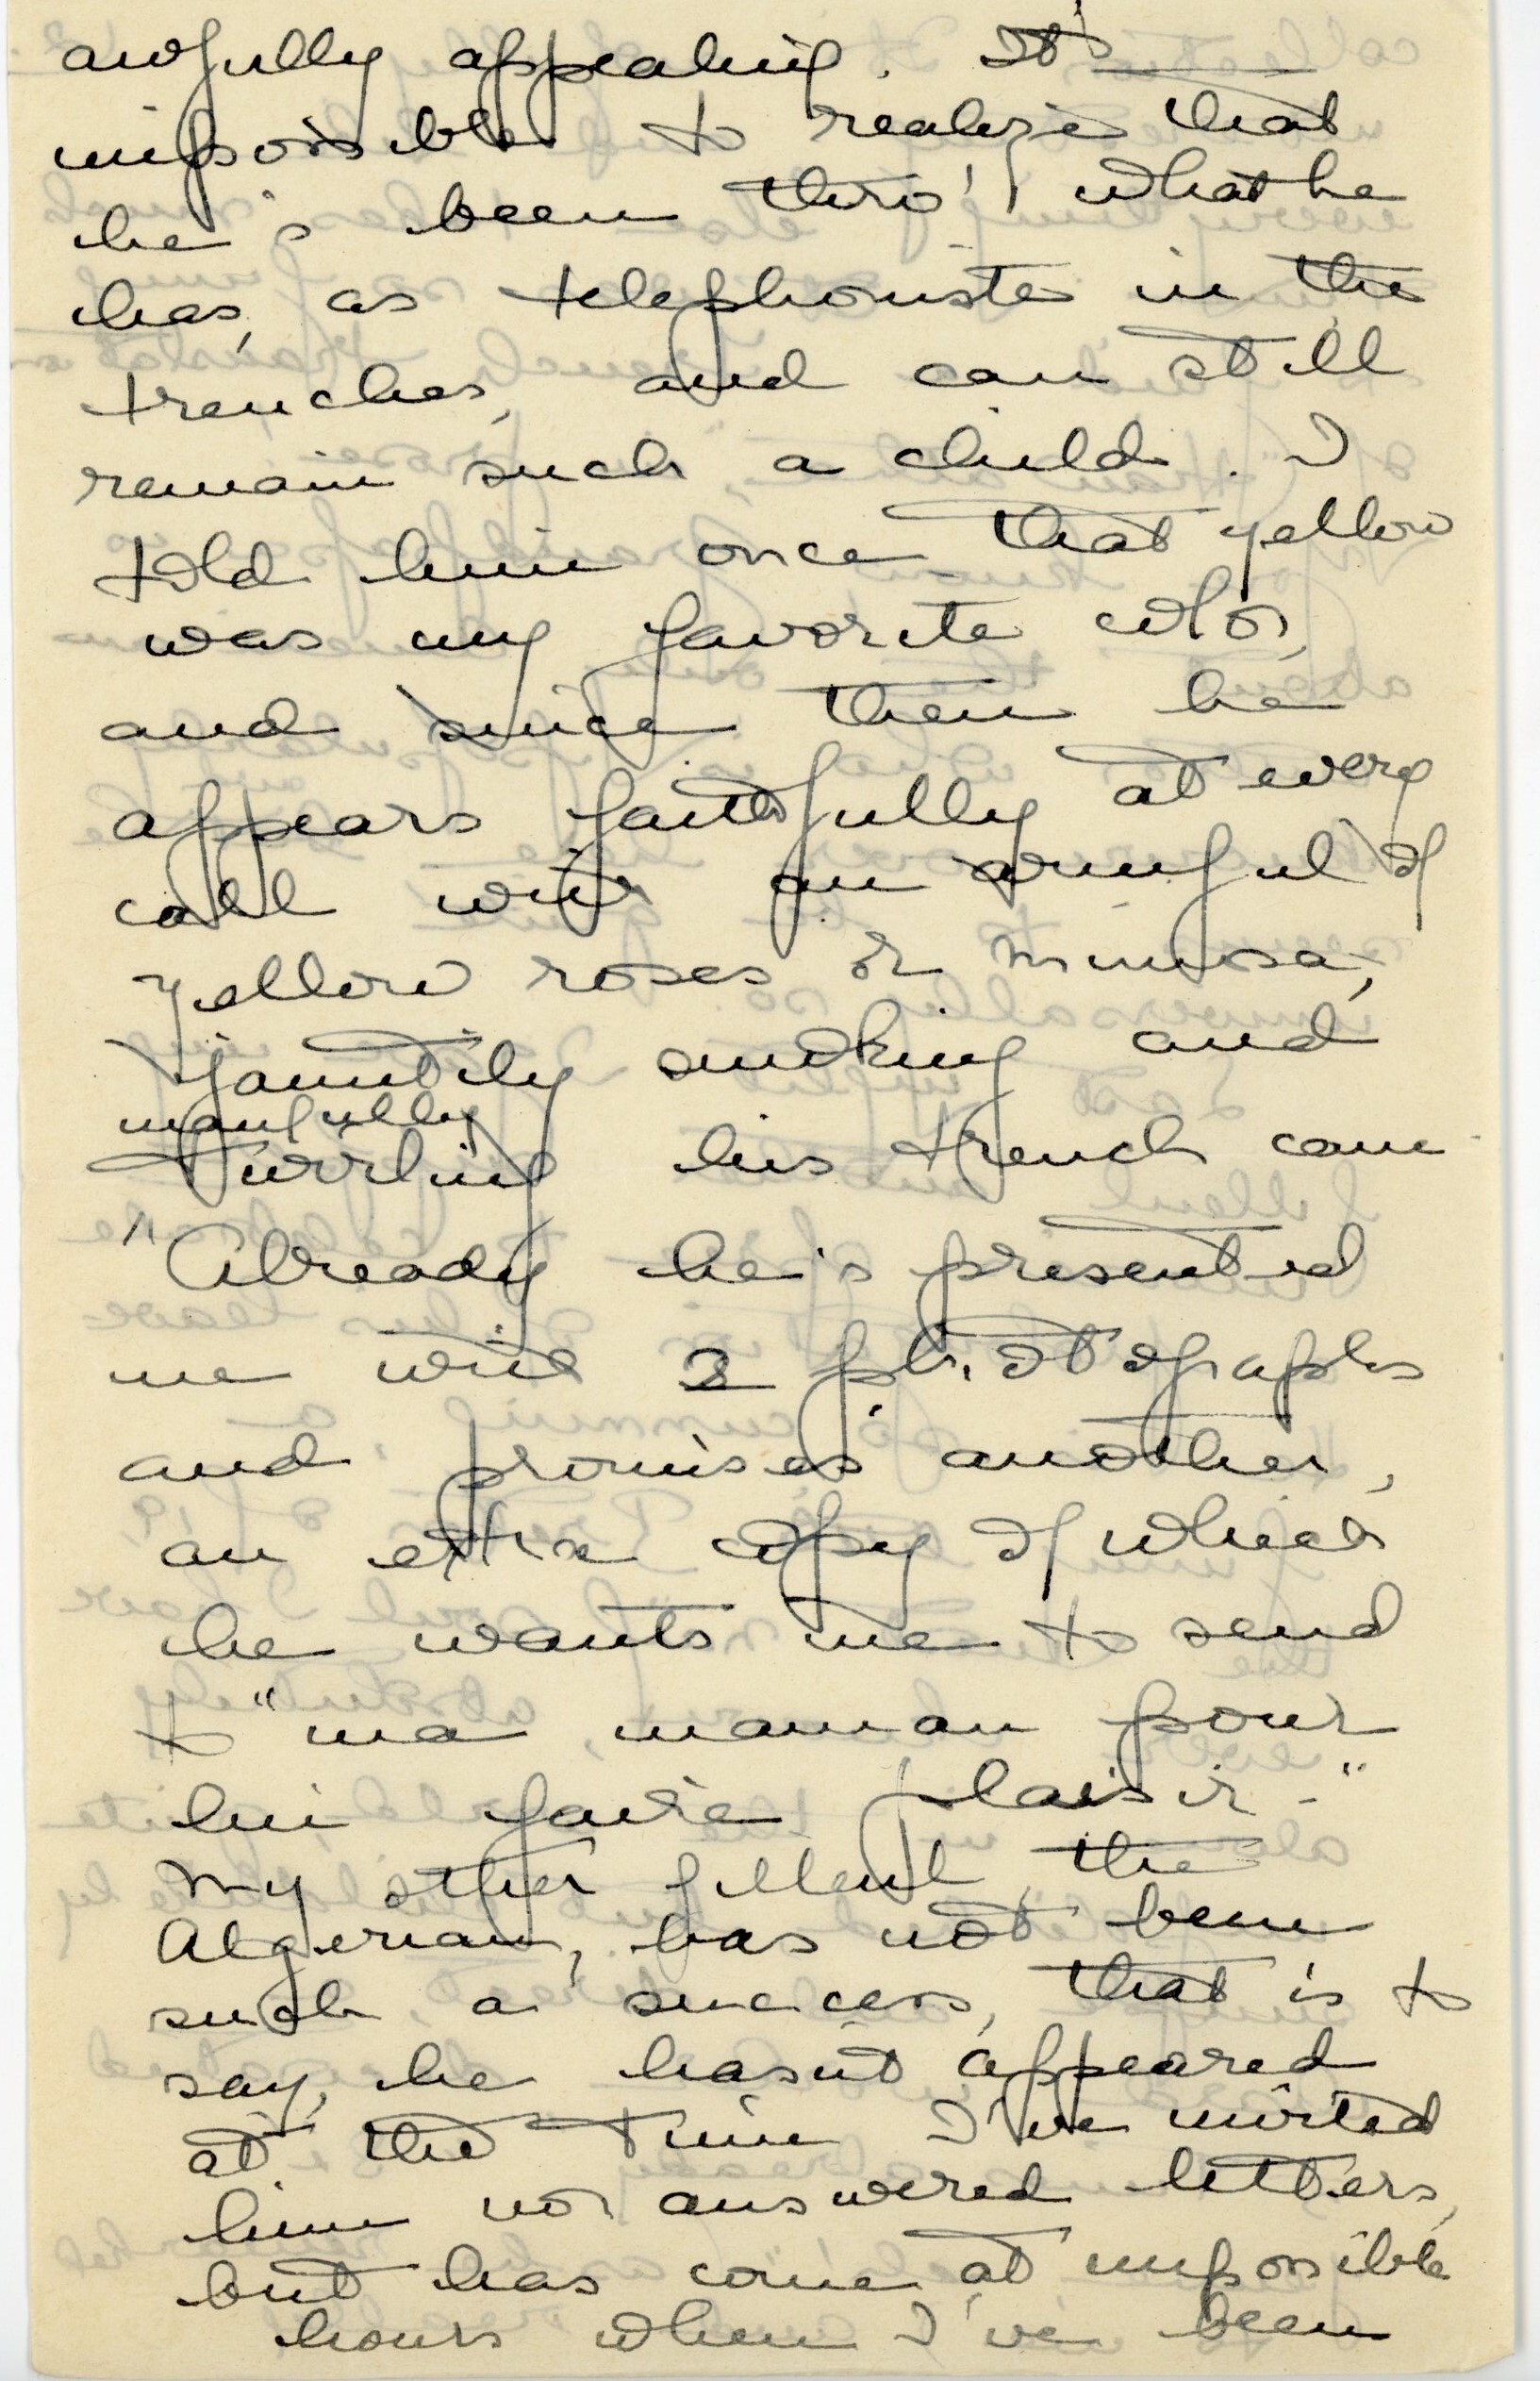 awfully appealing. It's
impossible to realize that
he's been thro' what he
has, as telephoniste in the
trenches, and can still
remain such a child. I
told him once that yellow
was my favorite color,
and since then he
appears faithfully at every
call with an armful of
yellow roses or mimosa,
jauntily smoking and
manfully
^ twirling his trench cane
Already he's presented
me with 2 photographs
and promises another,
an extra copy of which
he wants me to send
to "ma maman pour
lui faire plaisir."
My other filleul, the
Algerian, has not been
such a success, that is to
say, he hasn't appeared
at the time I've invited
him nor answered letters,
but has come at impossible
hours when I've been